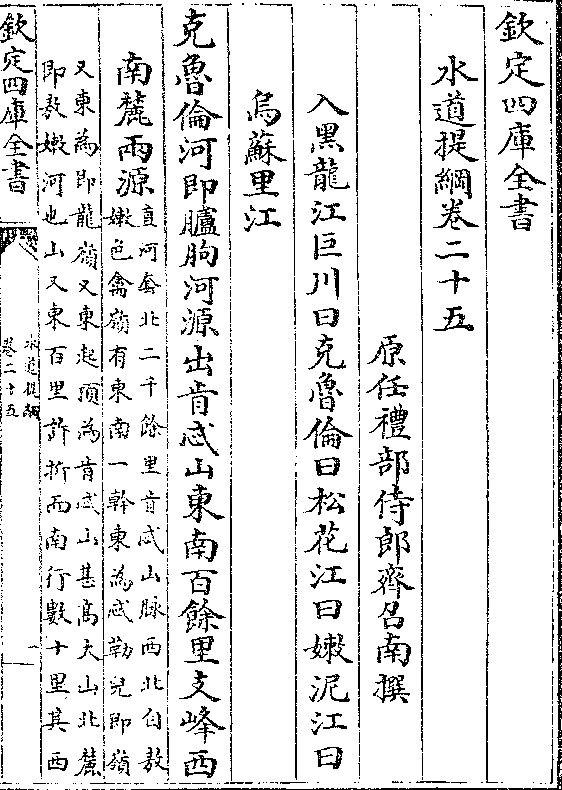 欽定四庫全書
水道提綱卷二十五
原任禮部侍郎齊召南撰
入黑龍江巨川曰克魯倫曰松花江曰嫩泥江曰
烏蘇里江
克魯倫河即臚朐河源出肯忒山東南百餘里支峰西
南麓兩源
直河套北二千餘里肯忒山脈西北自敖
嫩色禽嶺有東南一幹東為忒勒兒即嶺
又東為即龍嶺又東起頂為肯忒山甚高大山北麓
即敖嫩河也山又東百里許折而南行數十里其西
欽定四庫全書
水道提綱
卷二十五
一